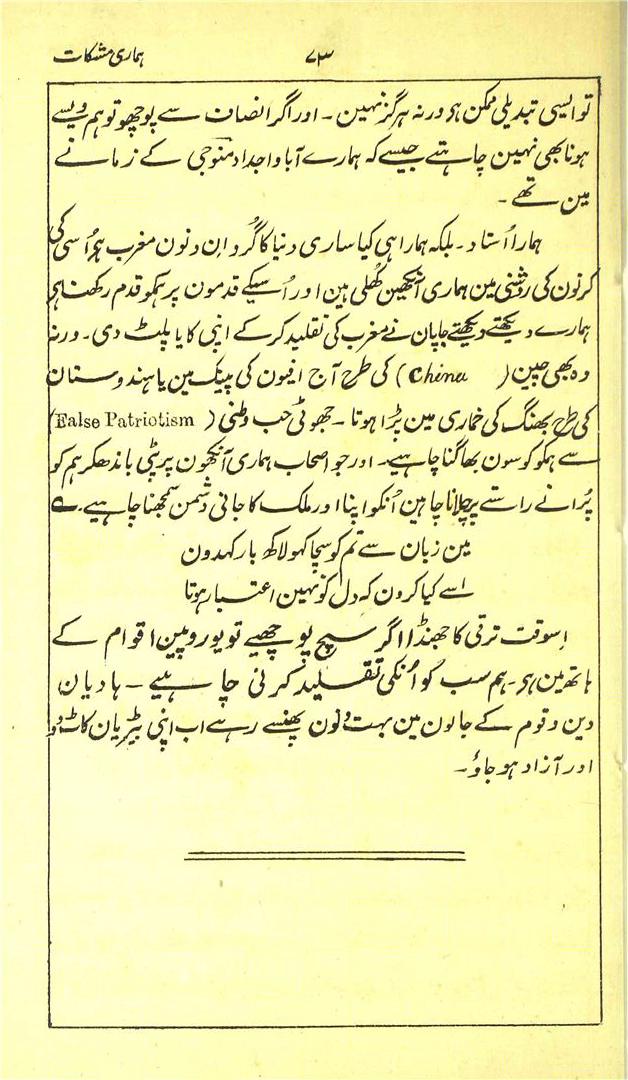 ہماری مشکلات ۷۳
تو ایسی تبدیلی ممکن ہی ورنہ ہرگز نہین ۔ اور اگر انصاف سے پوچھو تو ہم ویسے
ہونا بھی نہین چاہتے جیسے کہ ہمارے آبا و اجداد منوجی کے زمانے
مین تھے ۔
ہمارا اُستاد ۔ بلکہ ہمارا ہی کیا ساری دنیا کا گُرو اِن دنون مغرب ہی اُسی کی
کرنون کی روشنی مین ہماری آنکھین کُھلی ہین اور اُسیکے قدمون پر ہمکو قدم رکھنا ہی
ہمارے دیکھتے دیکھتے جاپان نے مغرب کی تقلید کرکے اپنی کایا پلٹ دی ۔ ورنہ
وہ بھی چین (China) کی طرح آج افیون کی پینک مین یا ہندوستان
کی طرح بھنگ کی خماری مین پڑا ہوتا ۔ جھوٹی حب وطنی (False Patriotism)
سے ہمکو کوسون بھاگنا چاہیے ۔ اور جو اصحاب ہماری آنکھون پر پٹی باندھکر ہم کو
پُرانے راستے پر چلانا چاہین اُنکو اپنا اور ملک کا جانی دشمن سمجھنا چاہیے ۔
مین زبان سے تم کو سچا کہو لاکھ بار کہدون
اسے کیا کرون کہ دل کو نہین اعتبار ہوتا
اِسوقت ترقی کا جھنڈا اگر سچ پوچھیے تو یوروپین اقوام کے
ہاتھ مین ہی ۔ ہم سب کو اُنکی تقلید کرنی چاہیے ۔ ہادیان
دین و قوم کے جالون مین بہت دنون پھنسے رہے اب اپنی بیڑیان کاٹ دو
اور آزاد ہو جاؤ ۔